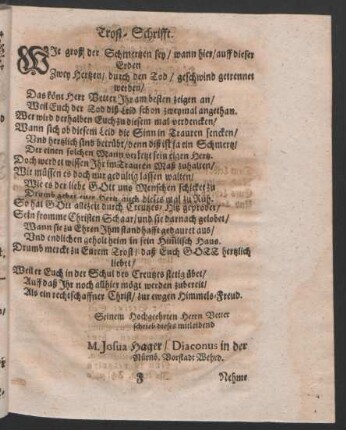 Trost-Schrifft.
WIe groß der Schmertzen sey/ wann hier/ auff dieser
Erden
Zwey Hertzen/ durch den Tod/ geschwind getrennet
werden/
Das könt Herr Vetter Ihr am besten zeigen an/
Weil Euch der Tod diß Leid schon zweymal angethan.
Wer wird derhalben Euch zu diesem mal verdencken/
Wann sich ob diesem Leid die Sinn in Trauren sencken/
Und hertzlich sind betrübt/ denn diß ist ja ein Schmertz/
Der einen solchen Mann verletzt sein eigen Hertz.
Doch werdet wissen Ihr im Trauren Maß zuhalten/
Wie müssen es doch nur gedultig lassen walten/
Wie es der liebe GOtt uns Menschen schicket zu
Drumb gebet euer Hertz auch dieses mal zu Ruh.
So hat GOtt allezeit durch Creutzes-Hitz geprobet/
Sein fromme Christen Schaar/ und sie darnach gelobet/
Wann sie zu Ehren Ihm standhafft gedauret aus/
Und endlichen geholt heim in sein Him̃lisch Haus.
Drumb merckt zu Eurem Trost/ daß Euch GOTT hertzlich
liebet/
Weil er Euch in der Schul des Creutzes stetig übet/
Auf daß Ihr noch allhier mögt werden zubereit/
Als ein rechtschaffner Christ/ zur ewgen Himmels-Freud.
Seinem Hochgeehrten Herrn Vetter
schrieb dieses mitleidend
M. Josua Hager/ Diaconus in der
Nürnb. Vorstadt Wehrd.
Nehmt